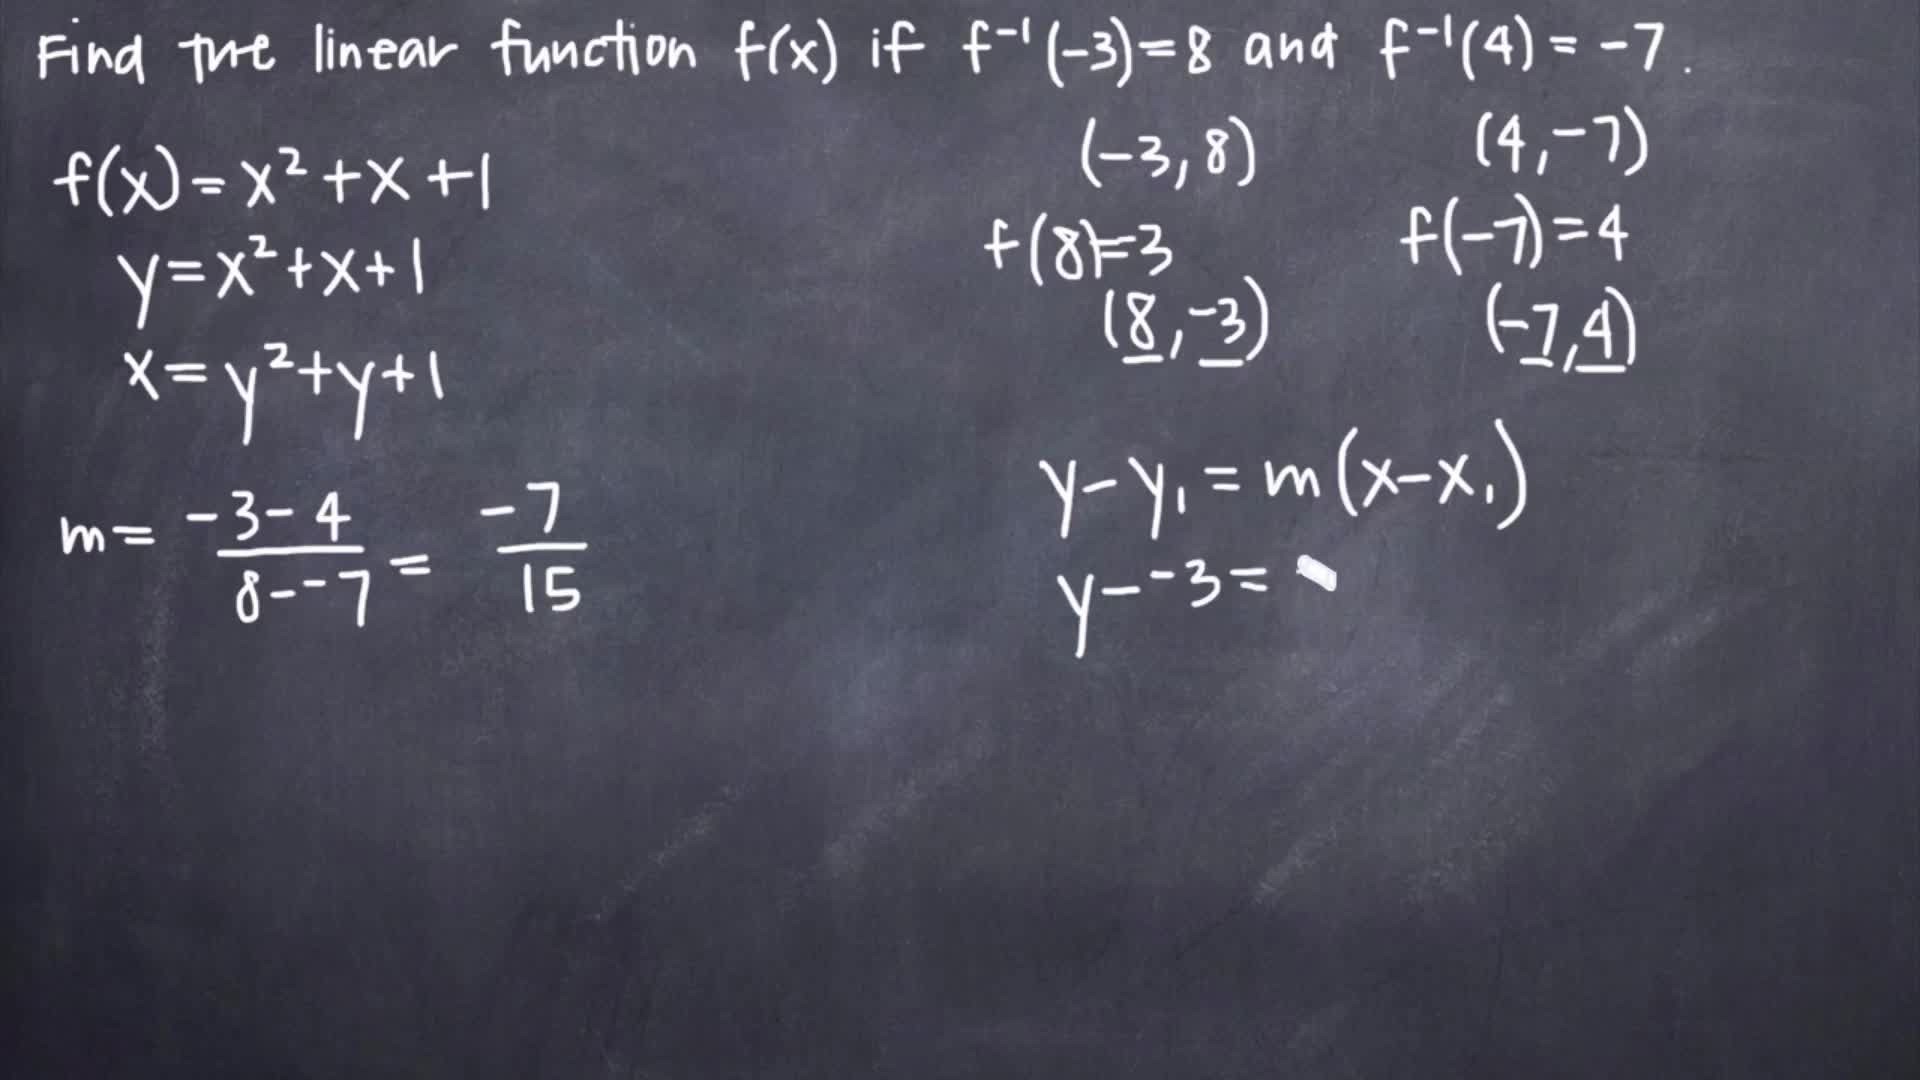 Find the linear function f(x) if f⁻¹(-3)=8 and f⁻¹(4)=-7.
f(x)=x²+x+1
y=x²+x+1
x=y²+y+1
m= -3-4 / 8--7 = -7 / 15
(-3,8)
f(8)=3
(8,-3)
(4,-7)
f(-7)=4
(-7,4)
y-y₁=m(x-x₁)
y--3=